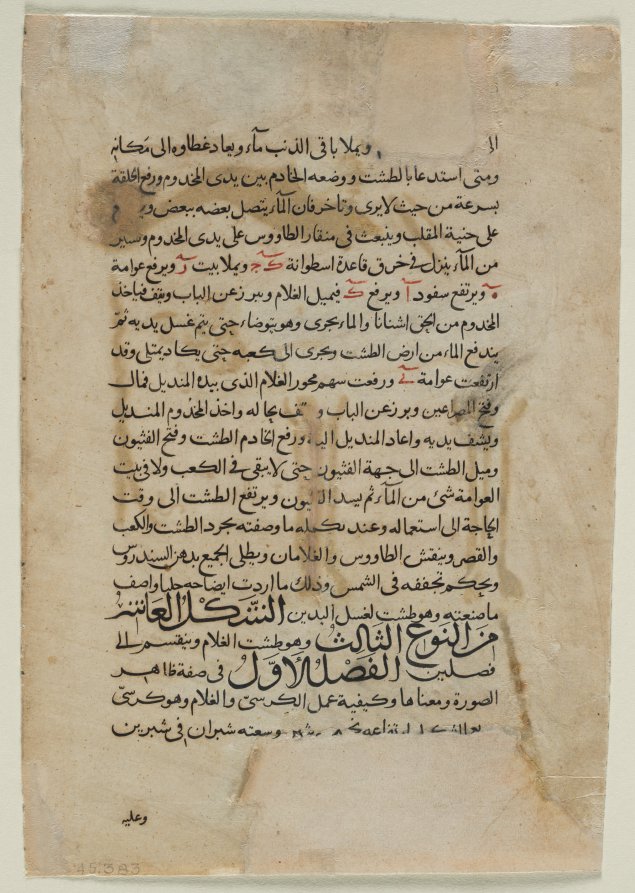 الى ويملا باقى الذنب مآء ويعاد غطاوه الى مكانه
ومتى استدعا بالطشت ووضعه الخادم بين يدى المخدوم ورفع الحلقة
بسرعة من حيث لا يرى وتاخر فان المآء يتصل بعضه ببعض
على حنية المقلب وينبعث فى منقار الطاووس على يدى المخدوم وسير
من المآء ينزل فى خرق قاعدة اسطوانة ويملا بيت ويرفع عوامة
ويرتفع سفود ا ويرفع فيميل الغلام ويبرز عن الباب ويقف فياخذ
المخدوم من الحق اشنانا والماء يجرى وهو يتوضاء حتى يتم غسل يديه ثم
يندفع الماء من ارض الطشت ويجرى الى كعبه حتى يكاد يمتلى وقد
ارتفعت عوامة ورفعت سهم محور الغلام الذى بيده المنديل فمال
وفتح المصراعين وبرز عن الباب بحاله واخذ المخدوم المنديل
وينشف يديه واعاد المنديل اليه ورفع الخادم الطشت وفتح الفثيون
وميل الطشت الى جهة الفثيون حتى لا يبقى فى الكعب ولا فى بيت
العوامة شئ من المآء ثم يسد الفثيون ويرتفع الطشت الى وقت
الحاجة الى استعماله وعند تكمله ما وصفته يجرد الطشت والكعب
والقصر وينقش الطاووس والغلامان ويطلى الجميع بدهن السندروس
ويحكم تجففه فى الشمس وذلك ما اردت ايضاحه جليا واصف
ما صنعته وهو طشت لغسل اليدين الشكل العاشر
من النوع الثالث وهو طشت الغلام وينقسم الى
فصلين الفصل الاول فى صفة ظاهر
الصورة ومعناها وكيفية عمل الكرسى والغلام وهو كرسى
الشكل ارتفاعه وسعته شبران فى شبرين
وعليه
45.383